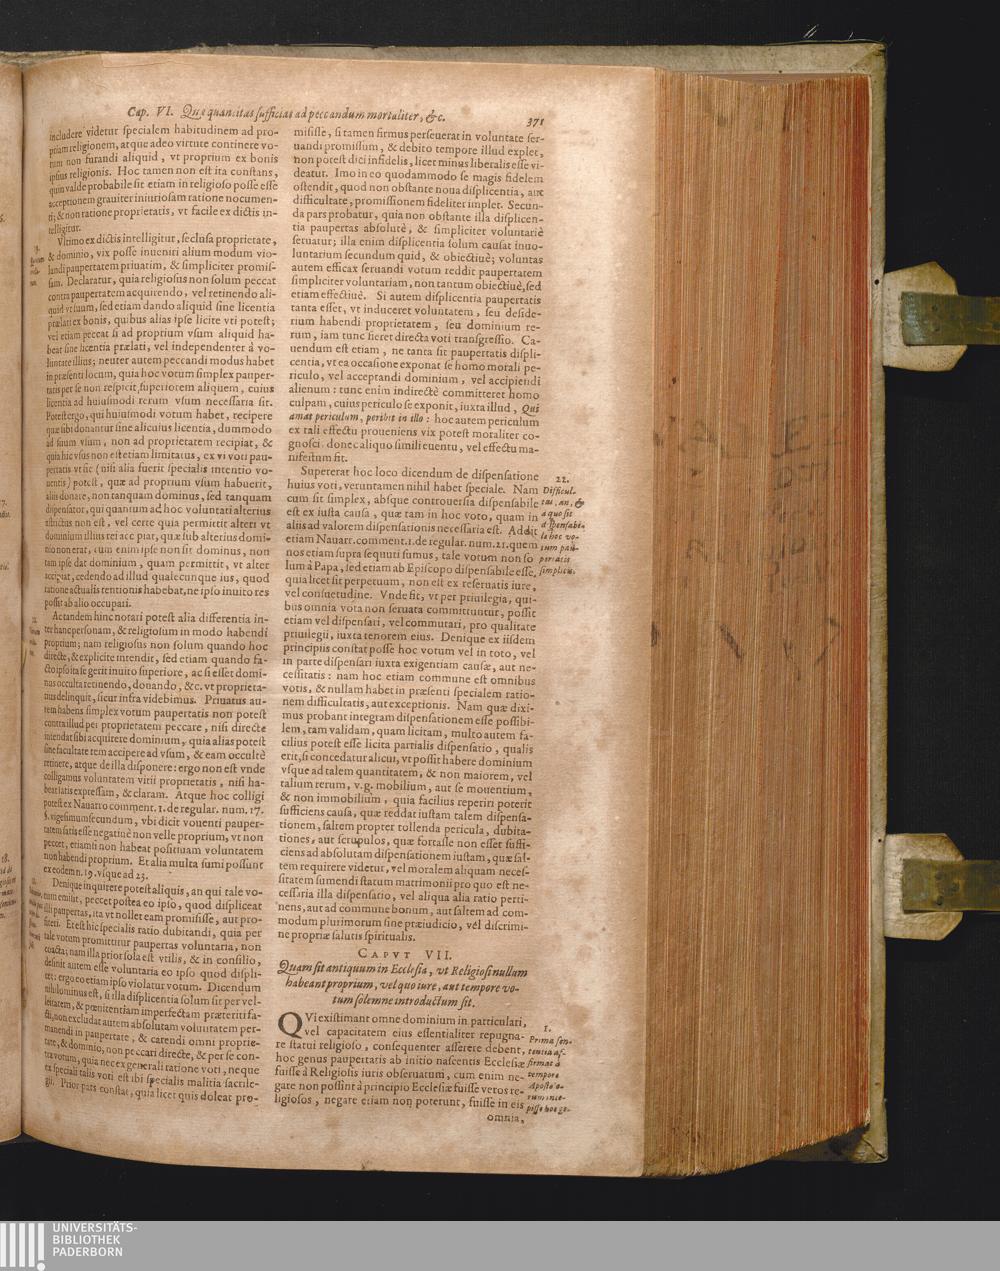 Cap. VI. Quæ quantitas sufficiat ad peccandum mortaliter, &c. 371
includere videtur specialem habitudinem ad pro-
priam religionem, atque adeo virtute continere vo-
tum non furandi aliquid, vt proprium ex bonis
ipsius religionis. Hoc tamen non est ita constans,
quin valde probabile sit etiam in religioso posse esse
acceptionem grauiter iniuriosam ratione nocumen-
ti; & non ratione proprietatis, vt facile ex dictis in-
telligitur.
Vltimo ex dictis intelligitur, seclusa proprietate,
& dominio, vix posse inueniri alium modum vio-
landi paupertatem priuatim, & simpliciter promis-
sam. Declaratur, quia religiosus non solum peccat
contra paupertatem acquirendo, vel retinendo ali-
quid vt suum, sed etiam dando aliquid sine licentia
prælati ex bonis, quibus alias ipse licite vti potest;
vel etiam peccat si ad proprium vsum aliquid ha-
beat sine licentia prælati, vel independenter à vo-
luntate illius; neuter autem peccandi modus habet
in præsenti locum, quia hoc votum simplex pauper-
tatis per se non respicit superiorem aliquem, cuius
licentia ad huiusmodi rerum vsum necessaria sit.
Potest ergo, qui huiusmodi votum habet, recipere
quæ sibi donantur sine alicuius licentia, dummodo
ad suum vsum, non ad proprietatem recipiat, &
quia hic vsus non est etiam limitatus, ex vi voti pau-
pertatis vt sic (nisi alia fuerit specialis intentio vo-
uentis) potest, quæ ad proprium vsum habuerit,
aliis donare, non tanquam dominus, sed tanquam
dispensator, qui quantum ad hoc voluntati alterius
astrictus non est, vel certe quia permittit alteri vt
dominium illius rei accipiat, quæ sub alterius domi-
nio non erat, cum enim ipse non sit dominus, non
tam ipse dat dominium, quam permittit, vt alter
accipiat, cedendo ad illud qualecunque ius, quod
ratione actualis rentionis habebat, ne ipso inuito res
possit ab alio occupari.
Ac tandem hinc notari potest alia differentia in-
ter hanc personam, & religiosum in modo habendi
proprium; nam religiosus non solum quando hoc
directe, & explicite intendit, sed etiam quando fa-
cto ipso ita se gerit inuito superiore, ac si esset domi-
nus occulta retinendo, donando, &c. vt proprieta-
rius delinquit, sicut infra videbimus. Priuatus au-
tem habens simplex votum paupertatis non potest
contra illud per proprietatem peccare, nisi directe
intendat sibi acquirere dominium, quia alias potest
sine facultate rem accipere ad vsum, & eam occultè
retinere, atque de illa disponere: ergo non est vnde
colligamus voluntatem vitii proprietatis, nisi ha-
beat iatis expressam, & claram. Atque hoc colligi
potest ex Nauarro comment. 1. de regular. num. 17.
§. vigesimum secundum, vbi dicit vouenti pauper-
tatem satis esse negatiuè non velle proprium, vt non
peccet, etiamsi non habeat positiuam voluntatem
non habendi proprium. Et alia multa sumi possunt
ex eodem n. 19. vsque ad 23.
Denique inquirere potest aliquis, an qui tale vo-
tum emisit, peccet postea eo ipso, quod displiceat
illi paupertas, ita vt nollet eam promisisse, aut pro-
fiteri. Et est hic specialis ratio dubitandi, quia per
tale votum promittitur paupertas voluntaria, non
coacta; nam illa prior sola est vtilis, & in consilio,
desinit autem esse voluntaria eo ipso quod displi-
cet: ergo eo etiam ipso violatur votum. Dicendum
nihilominus est, si illa displicentia solum sit per vel-
leitatem, & pœnitentiam imperfectam præteriti fa-
cti, non excludat autem absolutam voluntatem per-
manendi in paupertate, & carendi omni proprie-
tate, & dominio, non peccari directe, & per se con-
tra votum, quia nec ex generali ratione voti, neque
ex speciali talis voti est ibi specialis malitia sacrile-
gii. Prior pars constat, quia licet quis doleat pro-
misisse, si tamen firmus perseuerat in voluntate ser-
uandi promissum, & debito tempore illud explet,
non potest dici infidelis, licet minus liberalis esse vi-
deatur. Imo in eo quodammodo se magis fidelem
ostendit, quod non obstante noua displicentia, aut
difficultate, promissionem fideliter implet. Secun-
da pars probatur, quia non obstante illa displicen-
tia paupertas absolutè, & simpliciter voluntariè
seruatur; illa enim displicentia solum causat inuo-
luntarium secundum quid, & obiectiuè; voluntas
autem efficax seruandi votum reddit paupertatem
simpliciter voluntariam, non tantum obiectiuè, sed
etiam effectiuè. Si autem displicentia paupertatis
tanta esset, vt induceret voluntatem, seu deside-
rium habendi proprietatem, seu dominium re-
rum, iam tunc fieret directa voti transgressio. Ca-
uendum est etiam, ne tanta sit paupertatis displi-
centia, vt ea occasione exponat se homo morali pe-
riculo, vel acceptandi dominium, vel accipiendi
alienum: tunc enim indirectè committeret homo
culpam, cuius periculo se exponit, iuxta illud, Qui
amat periculum, peribit in illo: hoc autem periculum
ex tali effectu proueniens vix potest moraliter co-
gnosci, donec aliquo simili euentu, vel effectu ma-
nifestum sit.
Supererat hoc loco dicendum de dispensatione
huius voti, veruntamen nihil habet speciale. Nam
cum sit simplex, absque controuersia dispensabile
est ex iusta causa, quæ tam in hoc voto, quam in
aliis ad valorem dispensationis necessaria est. Addit
etiam Nauarr. comment. 1. de regular. num. 21. quem
nos etiam supra sequuti sumus, tale votum non so
lum à Papa, sed etiam ab Episcopo dispensabile esse,
quia licet sit perpetuum, non est ex reseruatis iure,
vel consuetudine. Vnde fit, vt per priuilegia, qui-
bus omnia vota non seruata committuntur, possit
etiam vel dispensari, vel commutari, pro qualitate
priuilegii, iuxta tenorem eius. Denique ex iisdem
principiis constat posse hoc votum vel in toto, vel
in parte dispensari iuxta exigentiam causæ, aut ne-
cessitatis: nam hoc etiam commune est omnibus
votis, & nullam habet in præsenti specialem ratio-
nem difficultatis, aut exceptionis. Nam quæ dixi-
mus probant integram dispensationem esse possibi-
lem, tam validam, quam licitam, multo autem fa-
cilius potest esse licita partialis dispensatio, qualis
erit, si concedatur alicui, vt possit habere dominium
vsque ad talem quantitatem, & non maiorem, vel
talium rerum, v.g. mobilium, aut se mouentium,
& non immobilium, quia facilius reperiri poterit
sufficiens causa, quæ reddat iustam talem dispensa-
tionem, saltem propter tollenda pericula, dubita-
tiones, aut scrupulos, quæ fortasse non esset suffi-
ciens ad absolutam dispensationem iustam, quæ sal-
tem requirere videtur, vel moralem aliquam neces-
sitatem sumendi statum matrimonii pro quo est ne-
cessaria illa dispensatio, vel aliqua alia ratio perti-
nens, aut ad commune bonum, aut saltem ad com-
modum plurimorum sine præiudicio, vel discrimi-
ne propriæ salutis spiritualis.
22.
Difficul-
tas, an, &
a quo sit
dispensabi-
le hoc vo-
tum pau-
pertatis
simplicis.
CAPVT VII.
Quam sit antiquum in Ecclesia, vt Religiosi nullum
habeant proprium, vel quo iure, aut tempore vo-
tum solemne introductum sit.
QVi existimant omne dominium in particulari,
vel capacitatem eius essentialiter repugna-
re statui religioso, consequenter asserere debent,
hoc genus paupertatis ab initio nascentis Ecclesiæ
fuisse à Religiosis iuris obseruatum, cum enim ne-
gare non possint à principio Ecclesiæ fuisse veros re-
ligiosos, negare etiam non poterunt, fuisse in eis
omnia,
1.
Prima sen-
tentia af-
firmat à
tempore
Aposto o-
rum ince-
pisse hoc ge-
UNIVERSITÄTS-
BIBLIOTHEK
PADERBORN